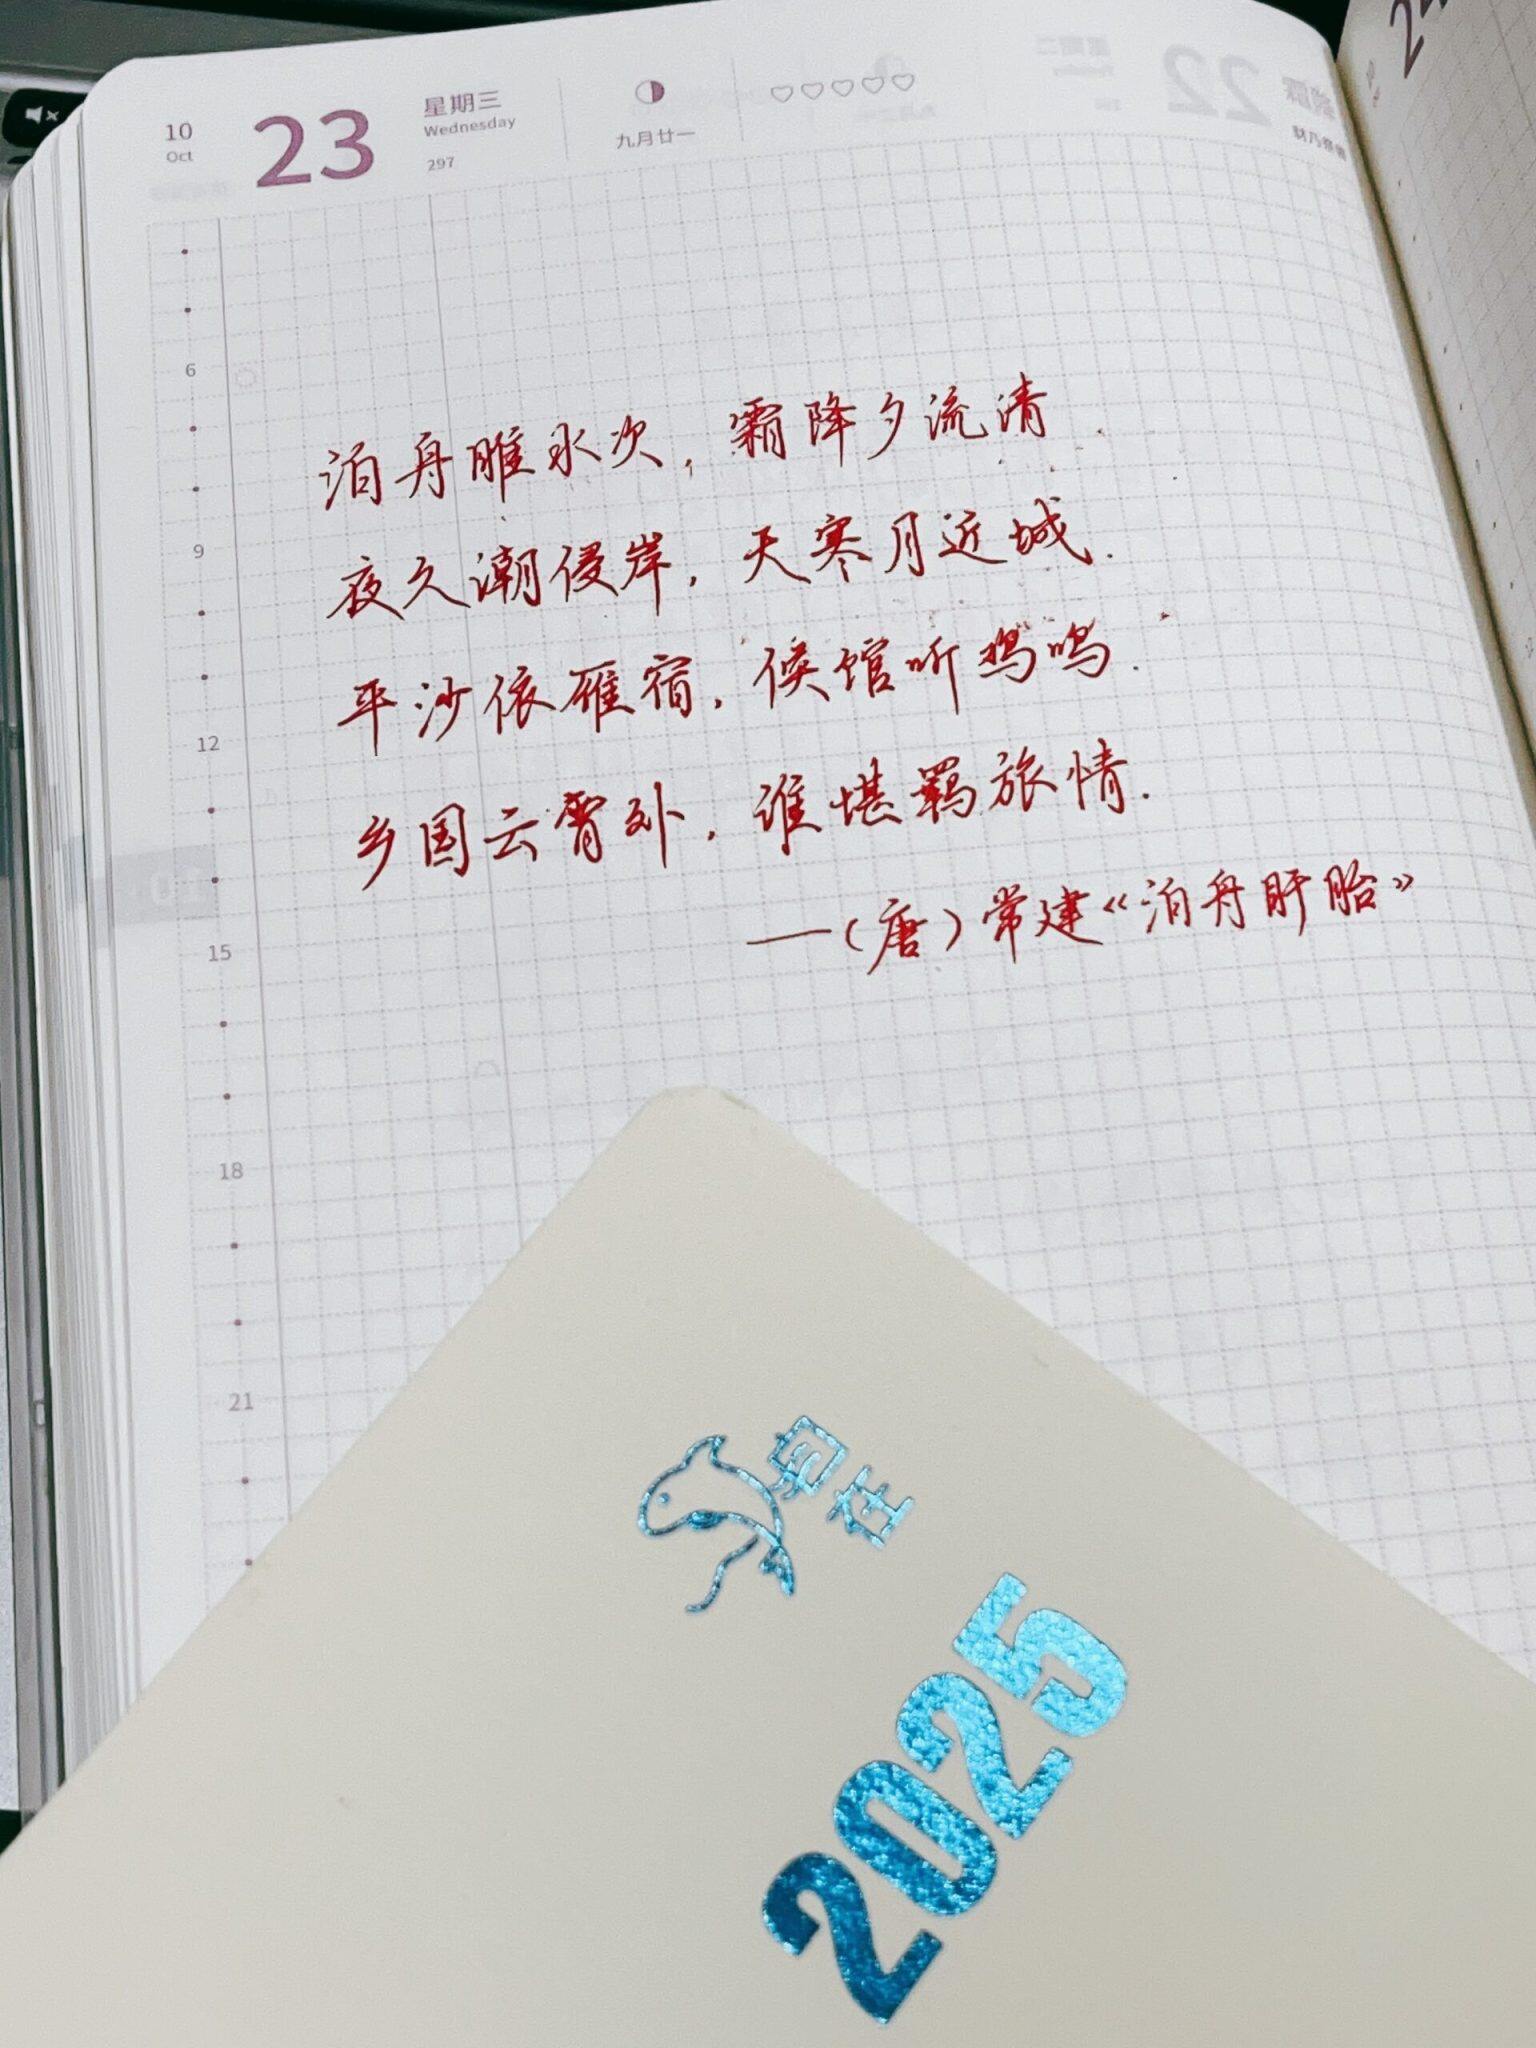 10
Oct
23
星期三
Wednesday
297
九月廿一
22
24
6
9
12
15
18
21
泊舟睢水次，霜降夕流清.
夜久潮侵岸，天寒月近城.
平沙依雁宿，候馆听鸡鸣.
乡国云霄外，谁堪羁旅情.
——（唐）常建《泊舟盱眙》
自在
2025